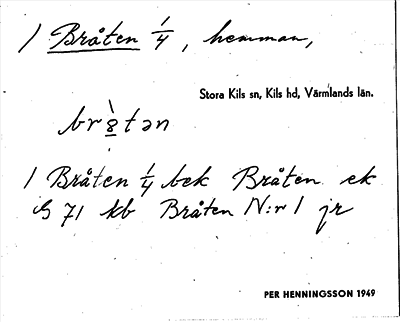 1 Bråten 1/4, hemman,
Stora Kils sn, Kils hd, Värmlands län.
br8̀tən
1 Bråten 1/4 bek Bråten ek
G 71 kb Bråten N:r 1 jr
PER HENNINGSSON 1949